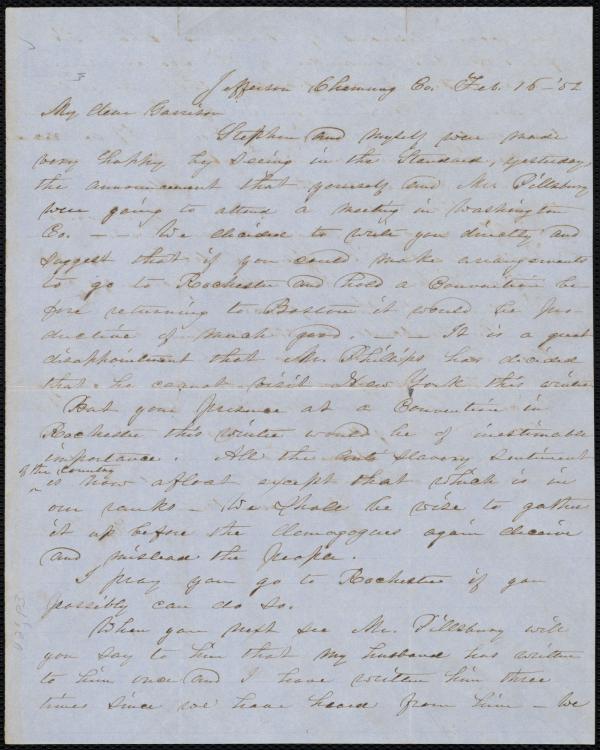 Jefferson Chemung Co. Feb. 16 - '52
My dear Garrison
Stephen and myself were made
very happy by seeing in the Standard, yesterday,
the announcement that yourself and Mr. Pillsbury
were going to attend a meeting in Washington
Co. — - We decided to write you directly and
suggest that if you could make arrangements
to go to Rochester and hold a Convention be
fore returning to Boston it would be pro-
ductive of much good. — — It is a great
disappointment that Mr. Phillips has decided
that he cannot visit New York this winter
But your presence at a Convention in
Rochester this winter would be of inestimable
importance. All the anti slavery sentiment
of the country
is now afloat except that which is in
our ranks — We shall be wise to gather
it up before the demagogues again deceive
and mislead the people.
I pray you go to Rochester if you
possibly can do so.
When you next see Mr. Pillsbury will
you say to him that my husband has written
to him once and I have written him three
times since we have heard from him — We